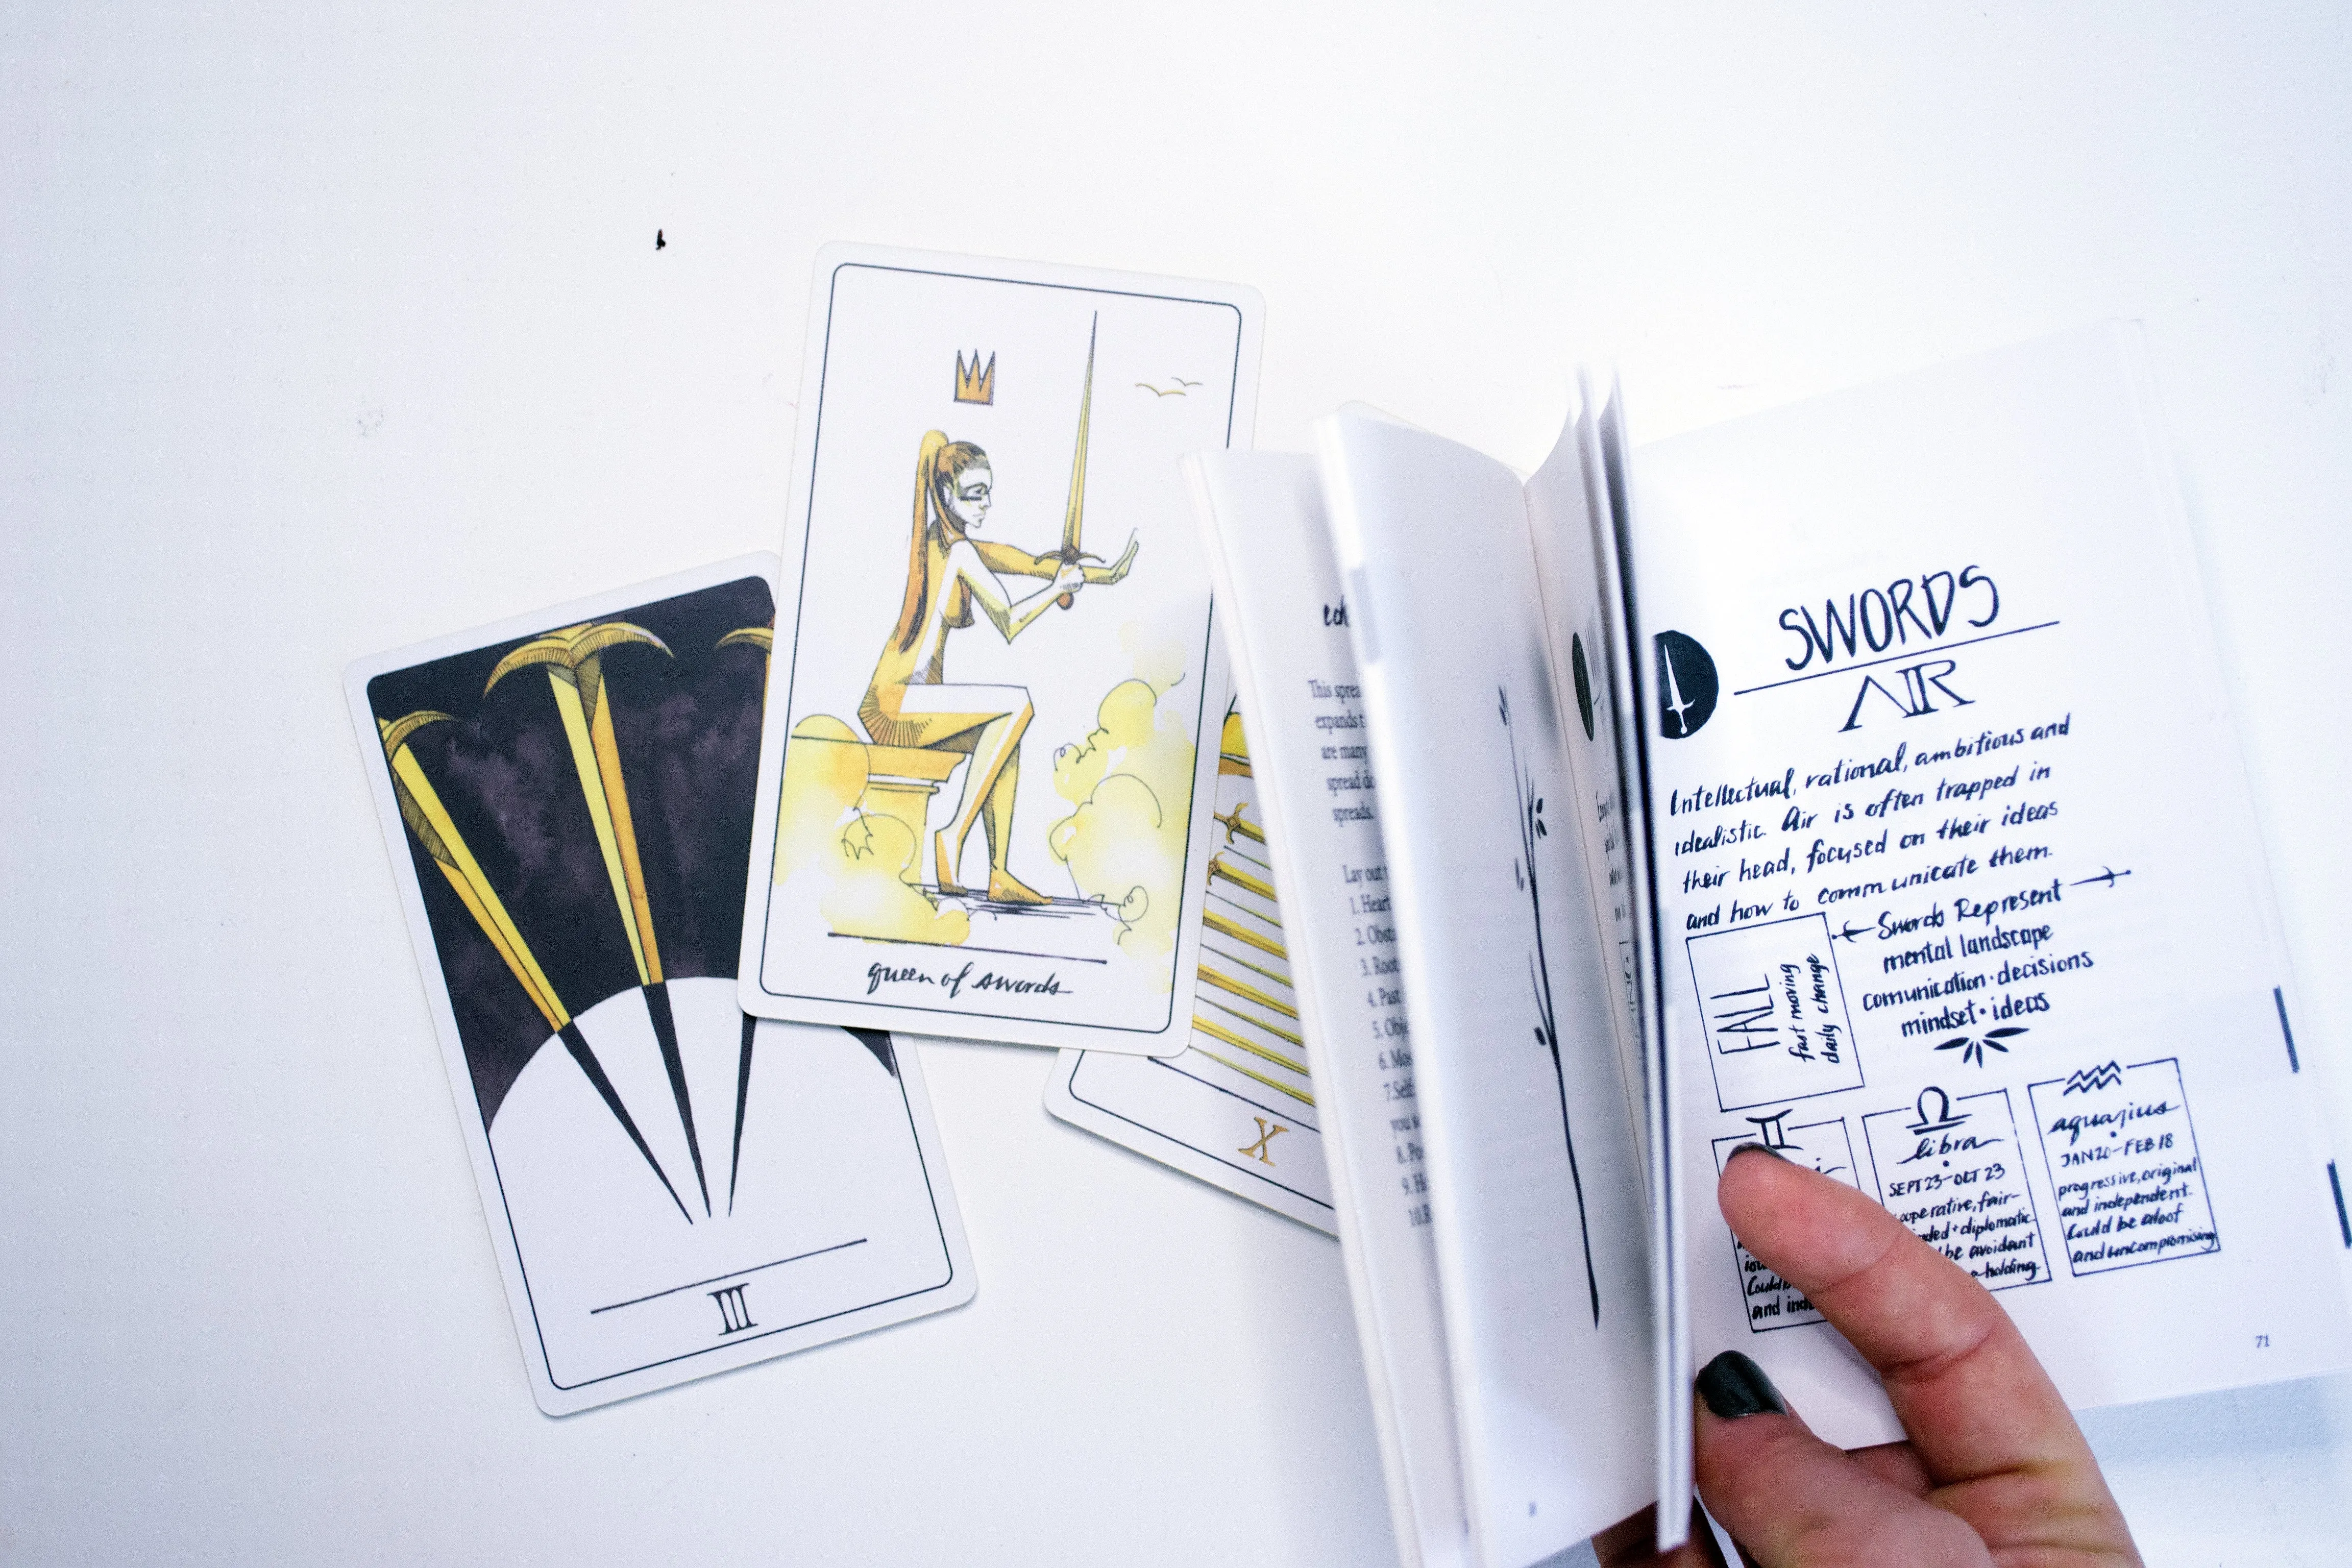 queen of swords
III
X
This
expands
are many
spread
spreads.
Lay out
1. Heart
2.
3. Root
4. Past
5.
6.
7. Self
you
8.
9.
10.
SWORDS
AIR
Intellectual, rational, ambitious and
idealistic. Air is often trapped in
their head, focused on their ideas
and how to communicate them.
Swords Represent
mental landscape
comunication · decisions
mindset · ideas
FALL
fast moving
daily change
and
libra
SEPT 23-OCT 23
fair-
diplomatic
be avoidant
holding
aquarius
JAN 20-FEB 18
progressive, original
and independent.
Could be aloof
and uncompromising
71